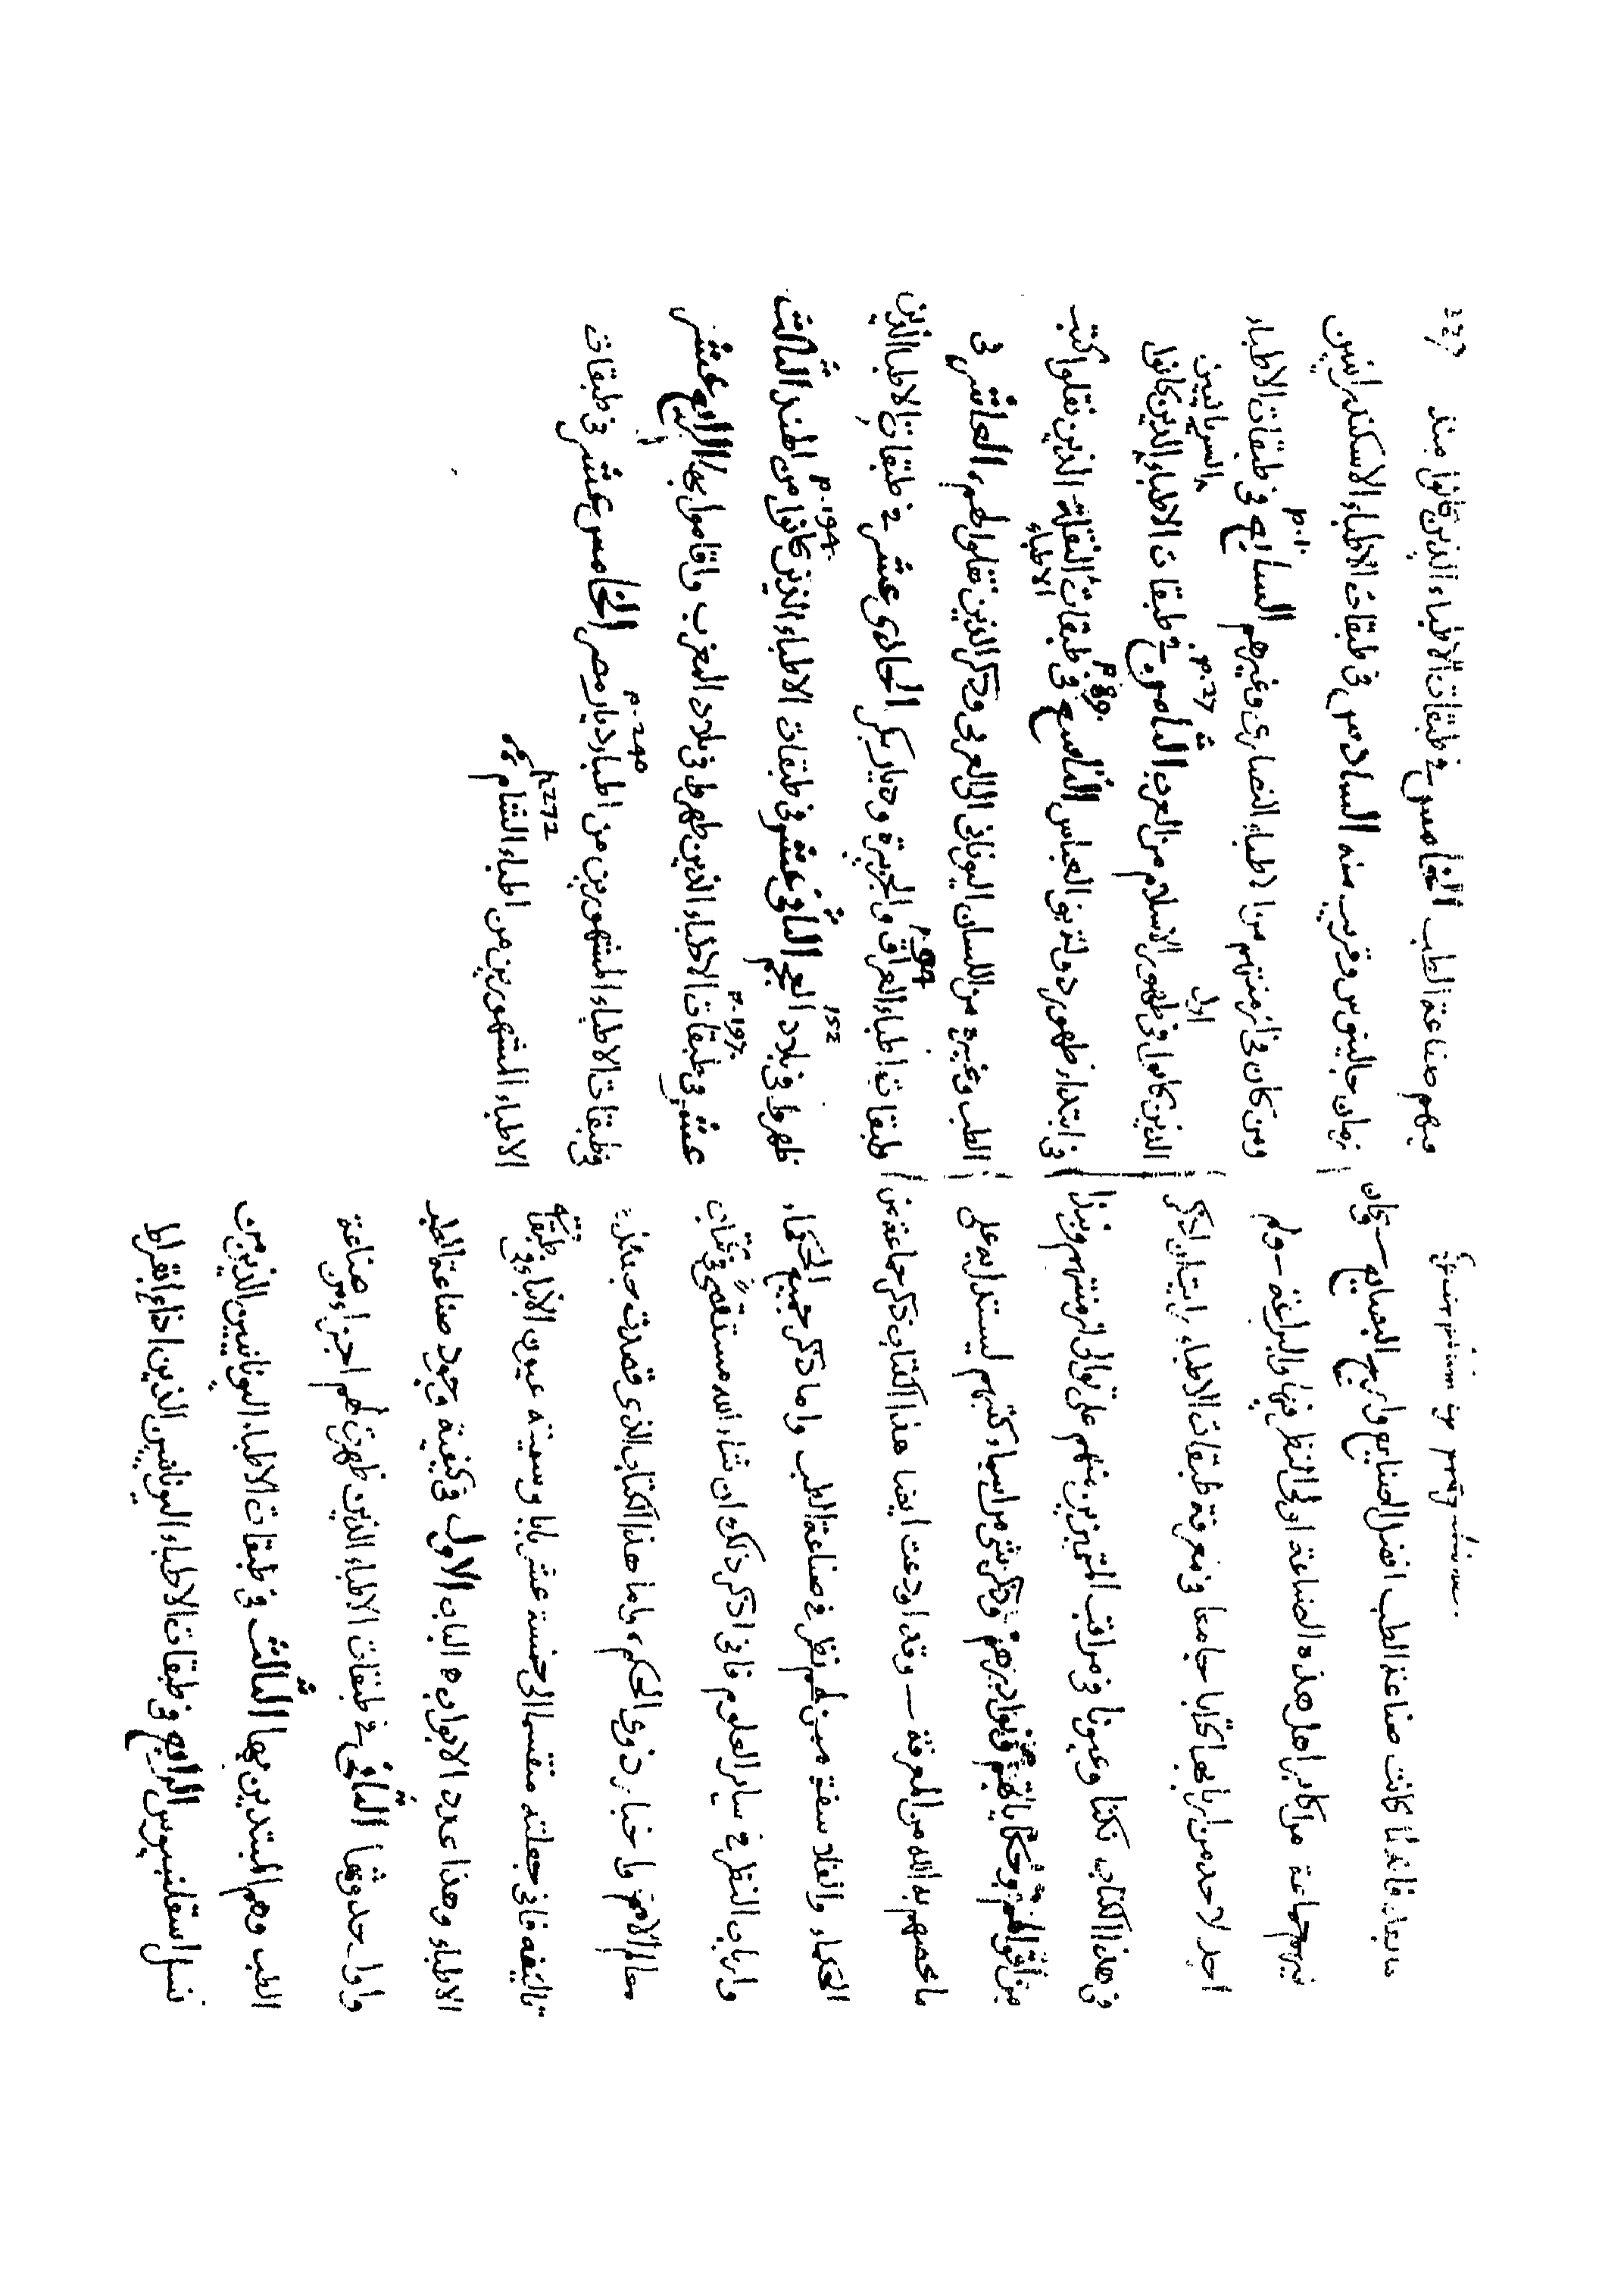 ما بعد فانه لما كانت صناعة الطب اشرف الصنايع واربح البضايع — وكان
جماعة من اكابر اهل هذه الصناعة اولى النظر فيها والبراعة — ولم
اجد لاحد من اربابها كتابا جامعا فى معرفة طبقات الاطباء رايت ان اذكر
فى هذا الكتاب نكتا وعيونا فى مراتب المتميزين منهم على توالى ازمنتهم ونبذا
من اقوالهم وحكاياتهم ونوادرهم وذكر شى من اسماء كتبهم ليستدل به على
ما خصهم به الله من المعرفة — وقد اودعت ايضا هذا الكتاب ذكر جماعة من
الحكماء والفلاسفة ممن لهم نظر فى صناعة الطب واما ذكر جميع الحكماء
وارباب النظر فى ساير العلوم فانى اذكر ذلك ان شاء الله مستقصى فى كتاب
معالم الامم واخبار ذوى الحكم واما هذا الكتاب الذى قصدت حينئذ
تاليفه فانى جعلته منقسما الى خمسة عشر بابا وسميته عيون الانباء فى طبقات
الاطباء وهذا عدد الابواب ه الباب الاول فى كيفية وجود صناعة الطب
واول حدوثها الثانى فى طبقات الاطباء الذين ظهرت لهم اجزاء من صناعة
الطب وهم المبتدين بها الثالث فى طبقات الاطباء اليونانيين الذين من
نسل اسقلنبيوس الرابع فى طبقات الاطباء اليونانيين الذين اذاع ابقراط
فيهم صناعة الطب الخامس فى طبقات الاطباء الذين كانوا منذ
زمان جالينوس وقريب منه السادس فى طبقات الاطباء الاسكندرانيين
ومن كان فى ازمنتهم من الاطباء النصارى وغيرهم السابع فى طبقات الاطباء
p.10
الذين كانوا فى اول ظهور الاسلام من العرب الثامن فى طبقات الاطباء السريانيين الذين كانوا
p.27
فى ابتداء ظهور دولة بنى العباس التاسع فى طبقات الاطباء النقلة الذين نقلوا كتب
الطب وغيره من اللسان اليونانى الى العربى وذكر الذين نقلوا لهم العاشر فى
طبقات اطباء العراق والجزيرة وديار بكر الحادى عشر فى طبقات الاطباء الذين
ظهروا فى بلاد العجم الثانى عشر فى طبقات الاطباء الذين كانوا من الهند الثالث
152
p.194
عشر فى طبقات الاطباء الذين ظهروا فى بلاد المغرب واقاموا بها الرابع عشر
p.197
فى طبقات الاطباء المشهورين من اطباء ديار مصر الخامس عشر فى طبقات
الاطباء المشهورين من اطباء الشام
p.272